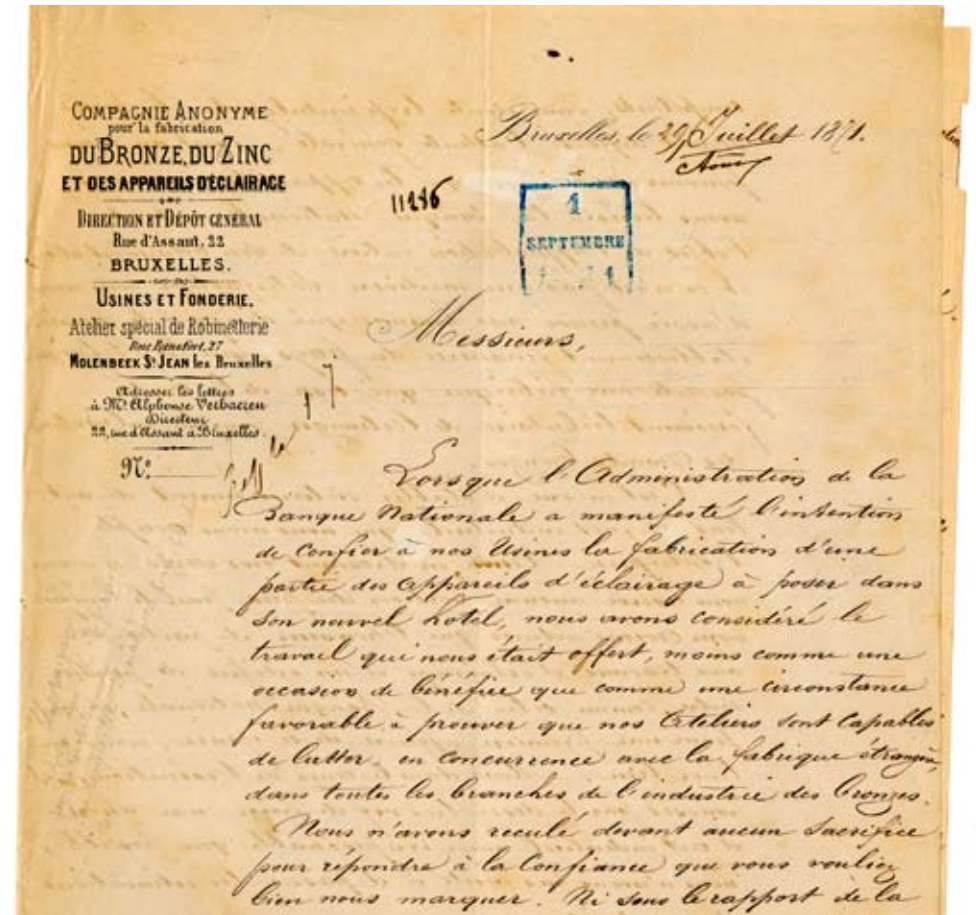 COMPAGNIE ANONYME
pour la fabrication
DU BRONZE, DU ZINC
ET DES APPAREILS D'ÉCLAIRAGE
DIRECTION ET DÉPÔT GÉNÉRAL
Rue d'Assaut, 22
BRUXELLES.
USINES ET FONDERIE.
Atelier spécial de Robinetterie
Rue Ransfort, 27
MOLENBEEK St JEAN lez Bruxelles
Adresser les lettres
à Mr. Alphonse Verhaeren
Directeur
22, rue d'Assaut à Bruxelles
No.
Bruxelles, le 29 Juillet 1871.
Aout
11286
1
SEPTEMBRE
Messieurs,
Lorsque l'Administration de la
Banque Nationale a manifesté l'intention
de Confier à nos Usines la fabrication d'une
partie des appareils d'éclairage à poser dans
son nouvel hotel, nous avons considéré le
travail qui nous était offert, moins comme une
occasion de bénéfice que comme une circonstance
favorable à prouver que nos Ateliers sont Capables
de lutter, en concurrence avec la fabrique étrangère,
dans toutes les branches de l'industrie des bronzes.
Nous n'avons reculé devant aucun sacrifice
pour répondre à la Confiance que vous vouliez
bien nous marquer. Ni sous le rapport de la